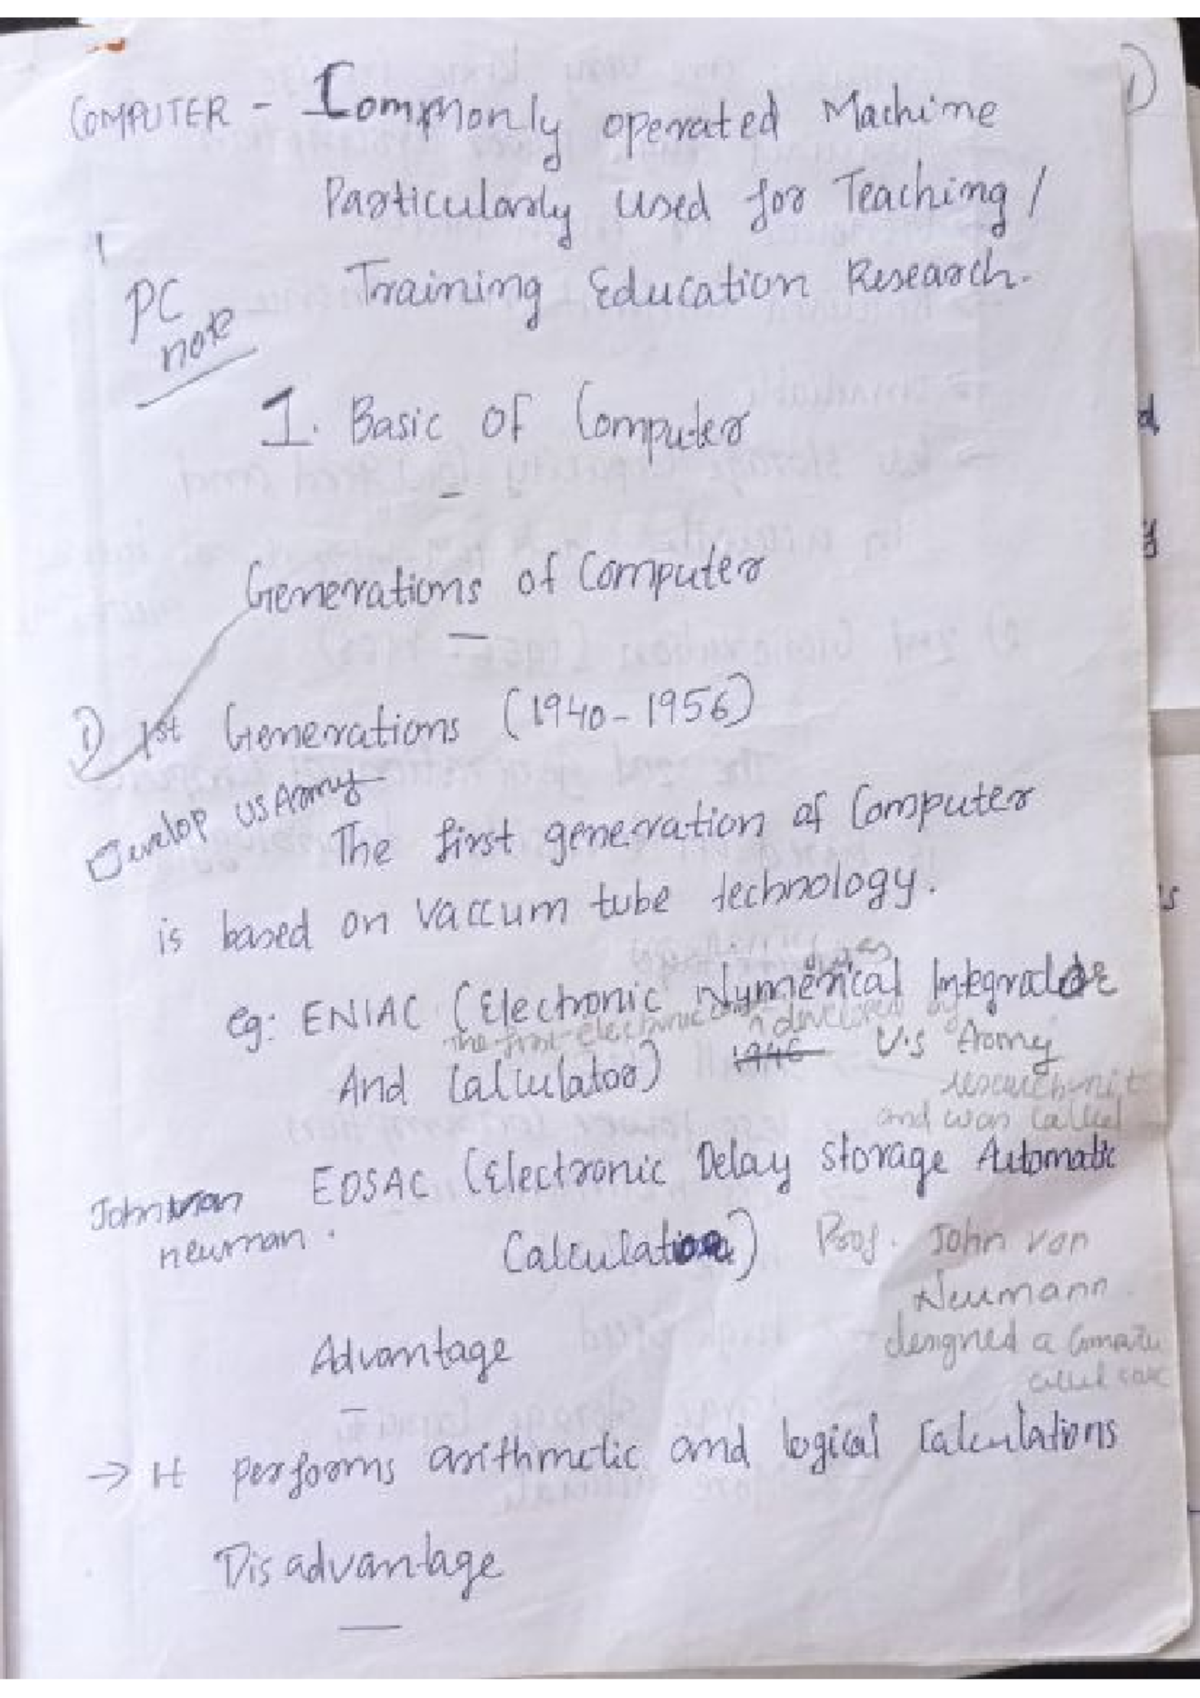 1)
COMPUTER - Commonly operated Machine
Particularly used for Teaching /
Training Education Research.
PC
note
1. Basic of Computer
Generations of Computer
1) 1st Generations (1940-1956)
Develop US Army
The first generation of Computer
is based on Vaccum tube technology.
eg: ENIAC (Electronic Numerical Integrator
The first electronic developed by
And Calculator) 1946 U.S Army
research
and was called
EDSAC (Electronic Delay Storage Automatic
John
neuman.
Calculator) Prof. John von
Neumann
designed a
called
Advantage
→ It performs arithmetic and logical Calculations
Disadvantage